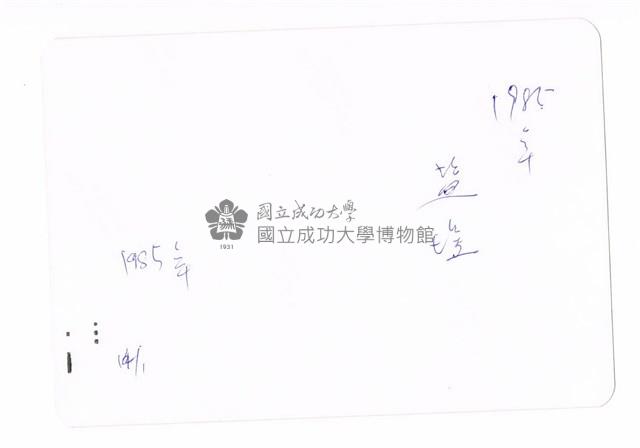 1985年
盐
國立成功大學
國立成功大學博物館
1931
1985年